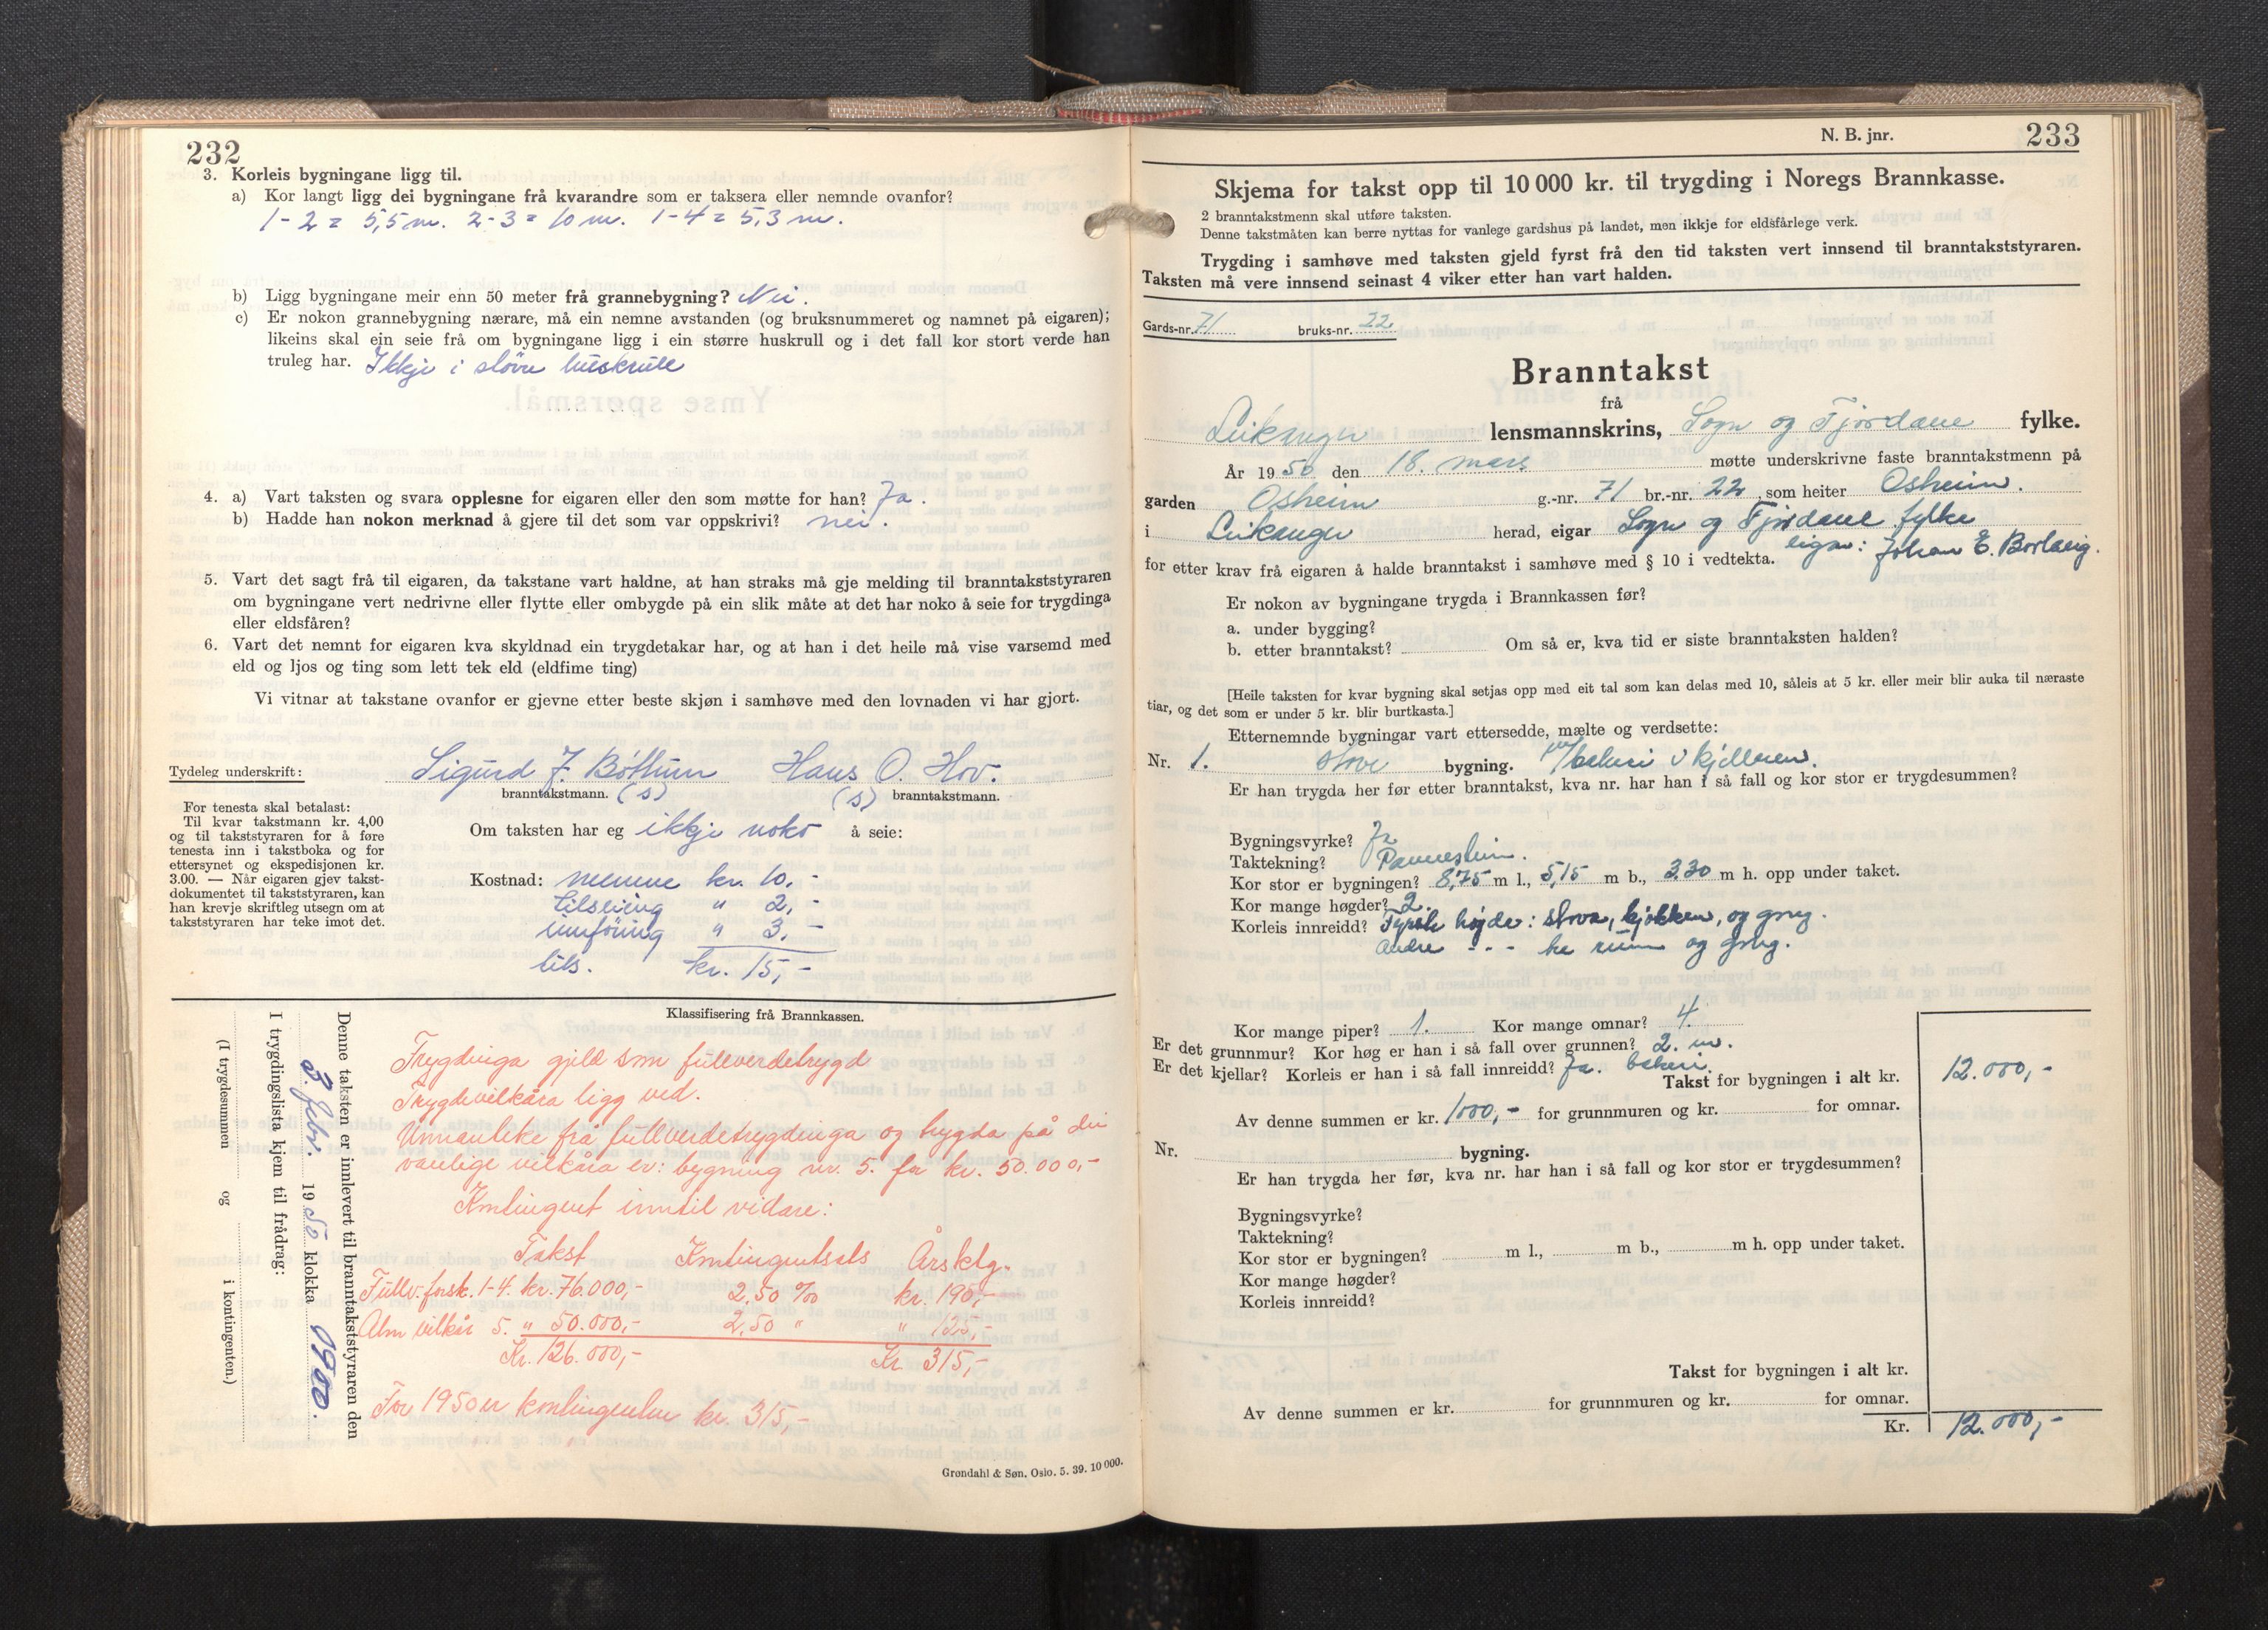 232
3. Korleis bygningane ligg til.
a) Kor langt ligg dei bygningane frå kvarandre som er taksera eller nemnde ovanfor?
1-2 = 5,5 m. 2-3 = 10 m. 1-4 = 5,3 m.
b) Ligg bygningane meir enn 50 meter frå grannebygning? Nei.
c) Er nokon grannebygning nærare, må ein nemne avstanden (og bruksnummeret og namnet på eigaren);
likeins skal ein seie frå om bygningane ligg i ein større huskrull og i det fall kor stort verde han
truleg har. Ikkje i større huskrull
4. a) Vart taksten og svara opplesne for eigaren eller den som møtte for han? Ja.
b) Hadde han nokon merknad å gjere til det som var oppskrivi? nei.
5. Vart det sagt frå til eigaren, da takstane vart haldne, at han straks må gje melding til branntakststyraren
om bygningane vert nedrivne eller flytte eller ombygde på ein slik måte at det har noko å seie for trygdinga
eller eldsfåren?
6. Vart det nemnt for eigaren kva skyldnad ein trygdetakar har, og at han i det heile må vise varsemd med
eld og ljos og ting som lett tek eld (eldfime ting)
Vi vitnar at takstane ovanfor er gjevne etter beste skjøn i samhøve med den lovnaden vi har gjort.
Tydeleg underskrift: Sigurd J. Bøthun Hans O. Hov.
branntakstmann. (s) (s) branntakstmann.
For tenesta skal betalast:
Til kvar takstmann kr. 4,00
og til takststyraren for å føre
tenesta inn i takstboka og for
ettersynet og ekspedisjonen kr.
3.00. — Når eigaren gjev takst-
dokumentet til takststyraren, kan
han krevje skriftleg utsegn om at
takststyraren har teke imot det.
Om taksten har eg ikkje noko å seie:
Kostnad: menne kr. 10,-
tilseiing " 2,-
innføring " 3,-
tils. kr. 15,-
Klassifisering frå Brannkassen.
Denne taksten er innlevert til branntakststyraren den
3. febr. 1950 klokka 1900.
I trygdingslista kjem til frådrag:
(I trygdesummen og i kontingenten.)
Trygdinga gjeld som fullverdetrygd
Trygdevilkåra ligg ved.
Unnanteke frå fullverdetrygdinga og trygda på dei
vanlige vilkåra er: bygning nr. 5. for kr. 50.000,-
Kontingent inntil vidare:
Takst Kontingentsats Årsktg.
Fullv. forsk. 1-4. kr. 76.000,- 2,50 ‰ kr. 190,-
Alm vilkår 5. " 50.000,- 2,50 " " 125,-
Kr. 126.000,- Kr 315,-
For 1950 er kontingenten kr. 315,-
Grøndahl & Søn. Oslo. 5. 39. 10 000.
N. B. jnr. 233
Skjema for takst opp til 10 000 kr. til trygding i Noregs Brannkasse.
2 branntakstmenn skal utføre taksten.
Denne takstmåten kan berre nyttas for vanlege gardshus på landet, men ikkje for eldsfårlege verk.
Trygding i samhøve med taksten gjeld fyrst frå den tid taksten vert innsend til branntakststyraren.
Taksten må vere innsend seinast 4 viker etter han vart halden.
Gards-nr. 71 bruks-nr. 22
Branntakst
frå
Leikanger lensmannskrins, Sogn og Fjordane fylke.
År 1950 den 18. mars møtte underskrivne faste branntakstmenn på
garden Osheim g.-nr. 71 br.-nr. 22, som heiter Osheim.
i Leikanger herad, eigar Sogn og Fjordane fylke
eigar: Johan E.
for etter krav frå eigaren å halde branntakst i samhøve med § 10 i vedtekta.
Er nokon av bygningane trygda i Brannkassen før?
a. under bygging?
b. etter branntakst? Om så er, kva tid er siste branntaksten halden?
[Heile taksten for kvar bygning skal setjas opp med eit tal som kan delas med 10, såleis at 5 kr. eller meir blir auka til næraste
tiar, og det som er under 5 kr. blir burtkasta.]
Etternemnde bygningar vart ettersedde, mælte og verdsette:
Nr. 1. stove bygning. m/bakeri i kjellaren.
Er han trygda her før etter branntakst, kva nr. har han i så fall og kor stor er trygdesummen?
Bygningsvyrke?
Taktekning? Pannestein.
Kor stor er bygningen? 8,75 m l., 5,15 m b., 3,30 m h. opp under taket.
Kor mange høgder? 2.
Korleis innreidd? Fyrste høgde: stova, kjøkken, og gang.
Andre -"- tre rum og gang.
Kor mange piper? 1. Kor mange omnar? 4.
Er det grunnmur? Kor høg er han i så fall over grunnen? 2. m.
Er det kjellar? Korleis er han i så fall innreidd? Ja. bakeri.
Takst for bygningen i alt kr. 12.000,-
Av denne summen er kr. 1000,- for grunnmuren og kr. for omnar.
Nr. bygning.
Er han trygda her før, kva nr. har han i så fall og kor stor er trygdesummen?
Bygningsvyrke?
Taktekning?
Kor stor er bygningen? m l., m b., m h. opp under taket.
Kor mange høgder?
Korleis innreidd?
Takst for bygningen i alt kr.
Av denne summen er kr. for grunnmuren og kr. for omnar.
Kr. 12.000,-